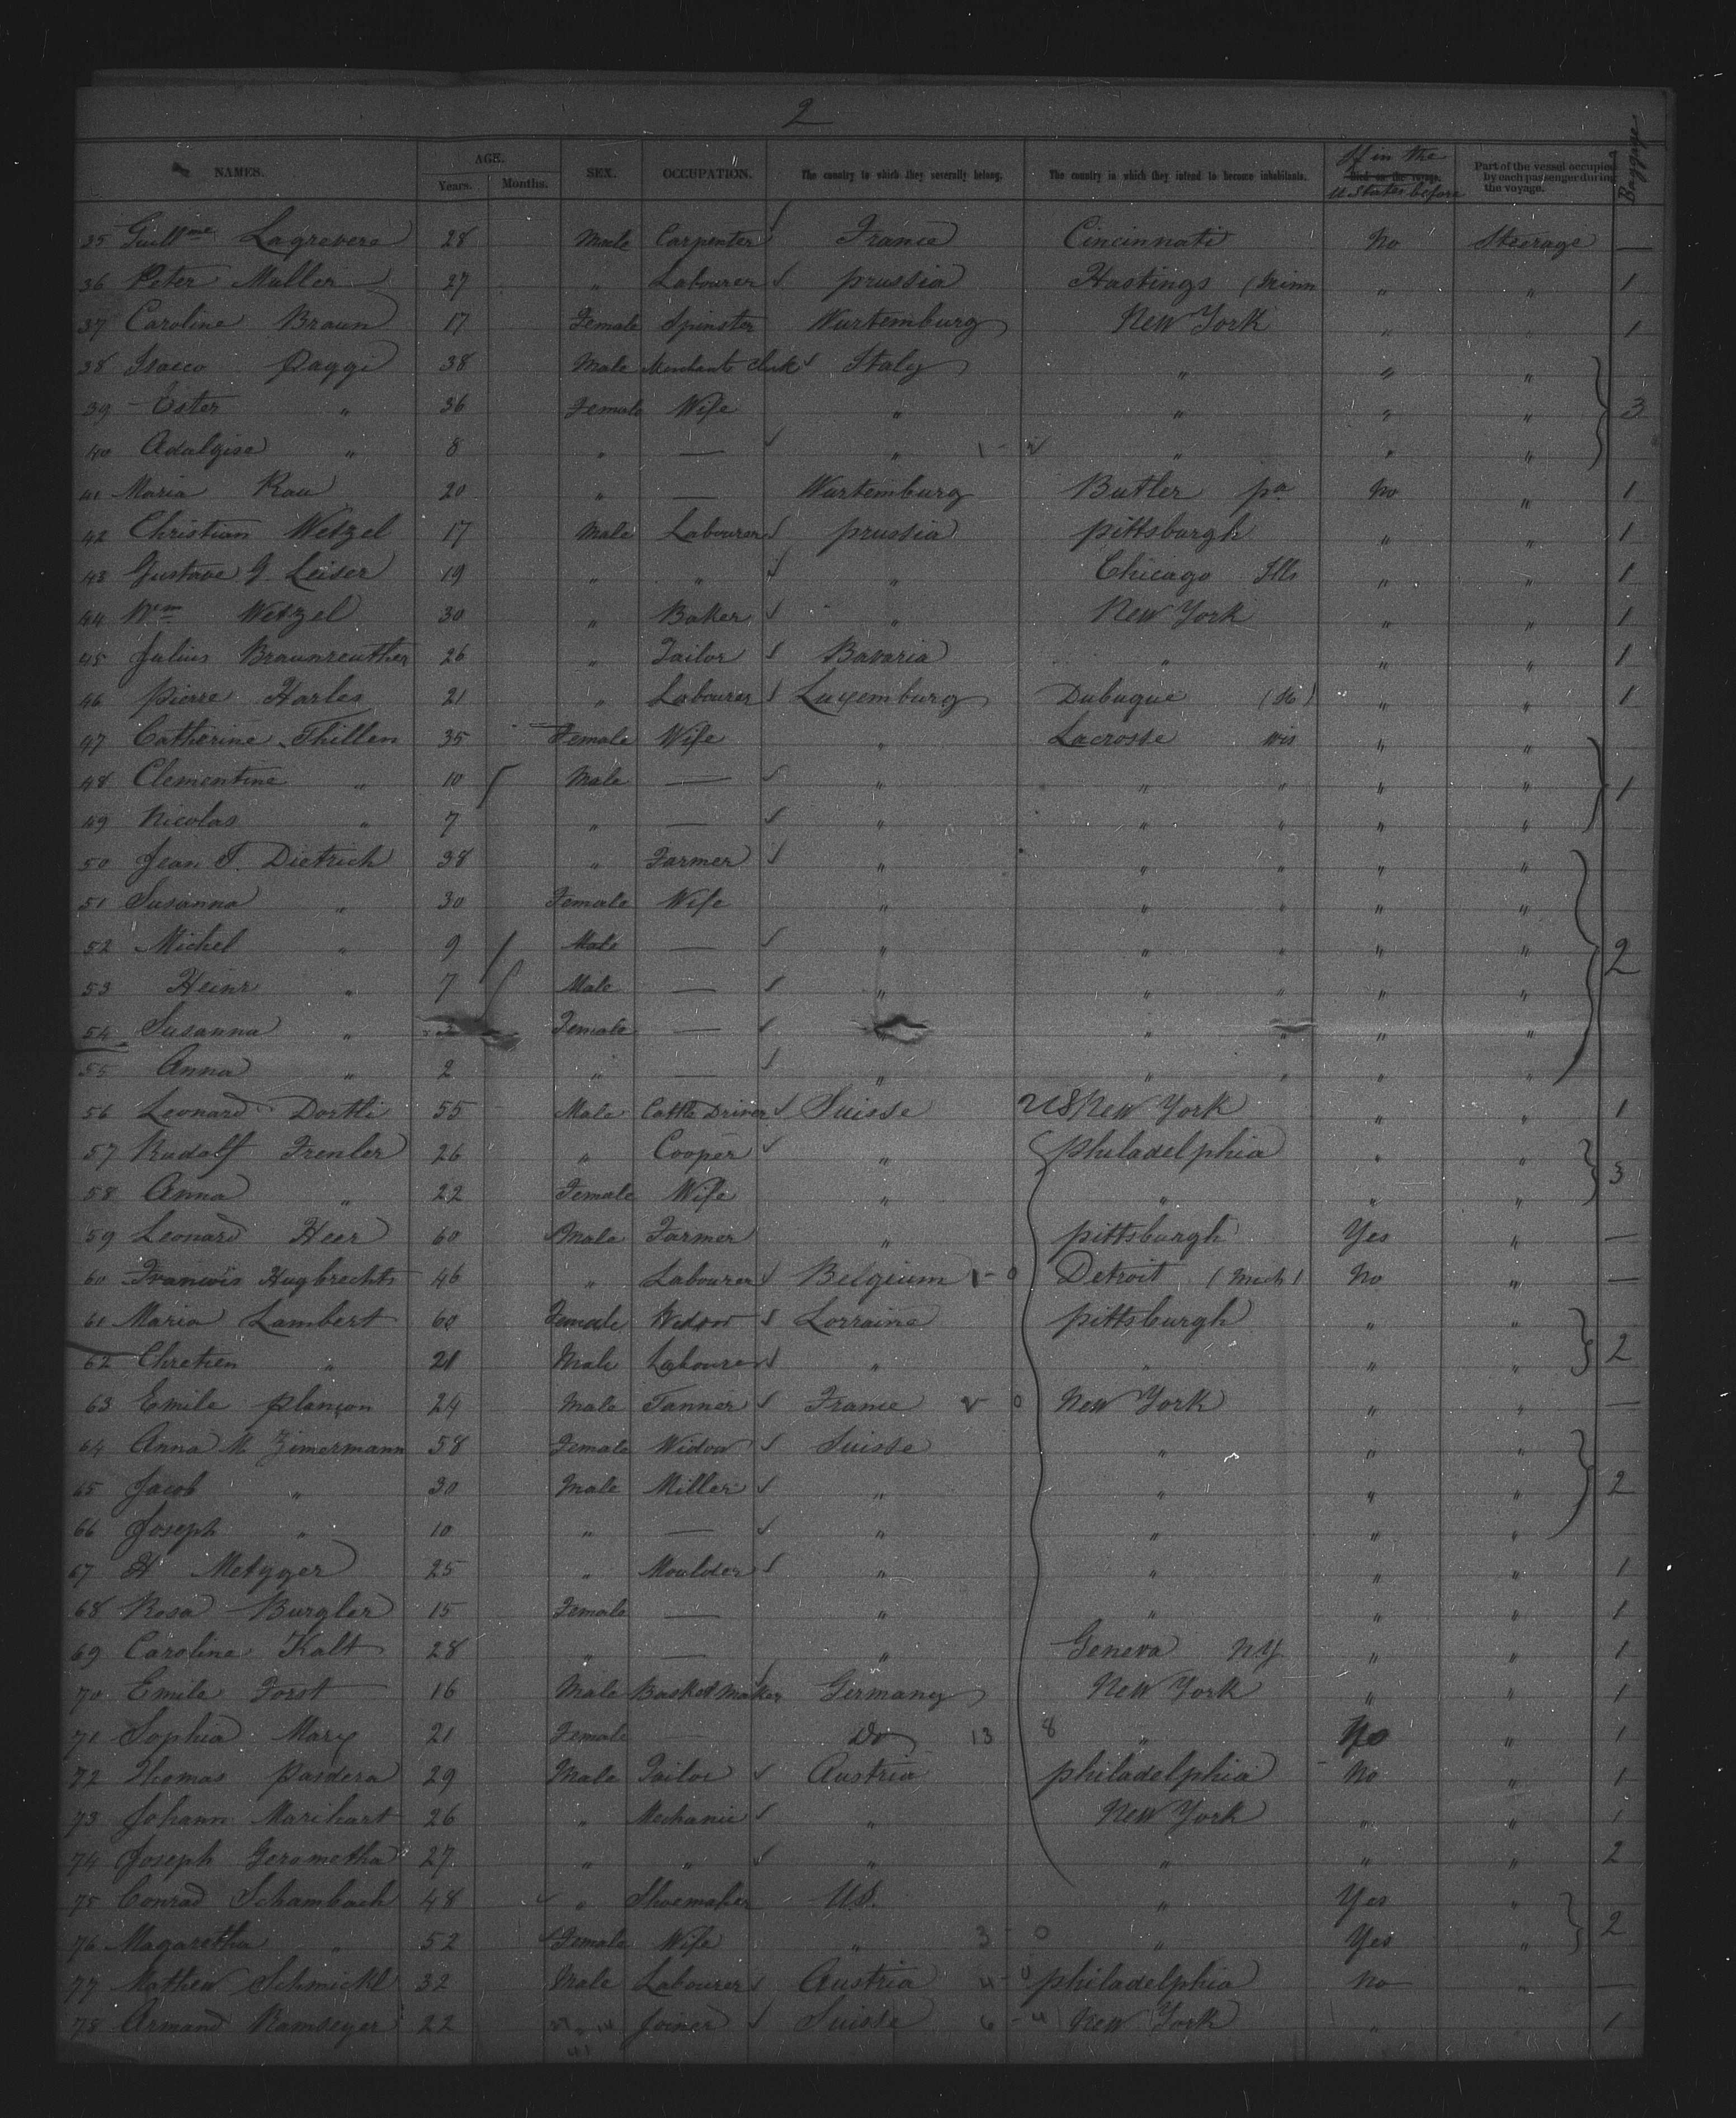 2
NAMES. AGE. Years. Months. SEX. OCCUPATION. The country to which they severally belong. The country in which they intend to become inhabitants. If in the U States before Part of the vessel occupied by each passenger during the voyage. Baggage
35 Guillme Lagrevere 28 Male Carpenter France Cincinnati No Steerage —
36 Peter Muller 27 " Labourer prussia Hastings (Minn " " 1
37 Caroline Braun 17 Female Spinster Wurtemburg New York " " 1
38 Isacco Paggi 38 Male Merchants Clerk Italy " " "
39 Ester " 36 Female Wife " " " " 3
40 Adalgise " 8 " — " " " "
41 Maria Rau 20 " — Wurtemburg Butler pa No " 1
42 Christian Wetzel 17 Male Labourer prussia pittsburgh " " 1
43 Gustave G. Leiser 19 " " " Chicago Ills " " 1
44 Wm Wetzel 30 " Baker " New York " " 1
45 Julius Braunreuther 26 " Tailor Bavaria " " " 1
46 Pierre Harles 21 " Labourer Luxemburg Dubuque " " 1
47 Catherine Thillen 35 Female Wife " Lacrosse wis " "
48 Clementine " 10 Male — " " " " " 1
49 Nicolas " 7 " — " " " " "
50 Jean T. Dietrich 38 " Farmer " " " " "
51 Susanna " 30 Female Wife " " " " "
52 Michel " 9 Male — " " " " " 2
53 Heinr " 7 Male — " " " " "
54 Susanna " Female — " " " " "
55 Anna " 2 " — " " " " "
56 Leonard Dortti 55 Male Cattle Driver Suisse US New York " " 1
57 Rudolf Frenler 26 " Cooper " philadelphia " " 3
58 Anna " 22 Female Wife " " " "
59 Leonard Heer 60 Male Farmer " pittsburgh Yes " —
60 Francois Huybrechts 46 " Labourer Belgium 1 - 0 Detroit (Mich) No " —
61 Maria Lambert 60 Female Widow Lorraine pittsburgh " "
62 Chretien " 21 Male Labourer " " " " 2
63 Emile plançon 24 Male Tanner France 0 New York " " —
64 Anna M Zimermann 58 Female Widow Suisse " " "
65 Jacob " 30 Male Miller " " " " 2
66 Joseph " 10 " — " " " "
67 H Metzger 25 " Moulder " " " " 1
68 Rosa Burgler 15 Female — " " " " 1
69 Caroline Kalt 28 " — " Geneva NY " " 1
70 Emile Forst 16 Male Basket Maker Germany New York " " 1
71 Sophia Marx 21 Female — Do 13 8 " No " 1
72 Thomas Pardera 29 Male Tailor Austria philadelphia No " 1
73 Johann Marihart 26 " Mechanic " New York " " 1
74 Joseph Gerometha 27 " " " " " " 2
75 Conrad Schambach 48 " Shoemaker U.S. " Yes "
76 Magaretha " 52 Female Wife " 3 - 0 " Yes " 2
77 Mathew Schmickl 32 Male Labourer Austria 4 - 0 philadelphia No " —
78 Armand Ramseyer 22 " Joiner Suisse 6 - 4 New York " " 1
41